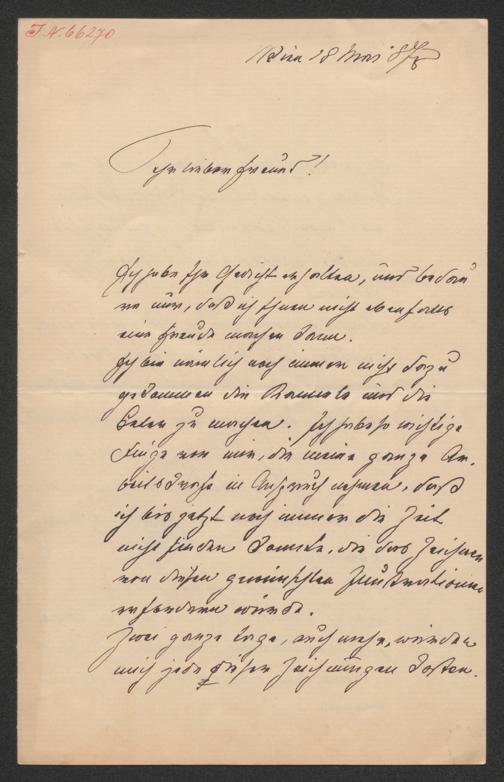 J.N. 66270
Wien 28 Mai 878
Sehr lieber Freund!
Ich habe Ihr Gedicht erhalten, und bedau
re nur, daß ich Ihnen nicht ebenfalls
eine Freude machen kann.
Ich bin nämlich noch immer nicht dazu
gekommen die Ramsela und die
zu machen. Ich habe so wichtige
Dinge vor mir, die meine ganze Ar-
beitskraft in Anspruch nehmen, daß
ich bis jetzt noch immer die Zeit
nicht finden konnte, die das Zeichnen
von diesen gewünschten Illustrationen
erfordern würde.
Zwei ganze Tage, auch mehr, würden
mich jede dieser Zeichnungen kosten.